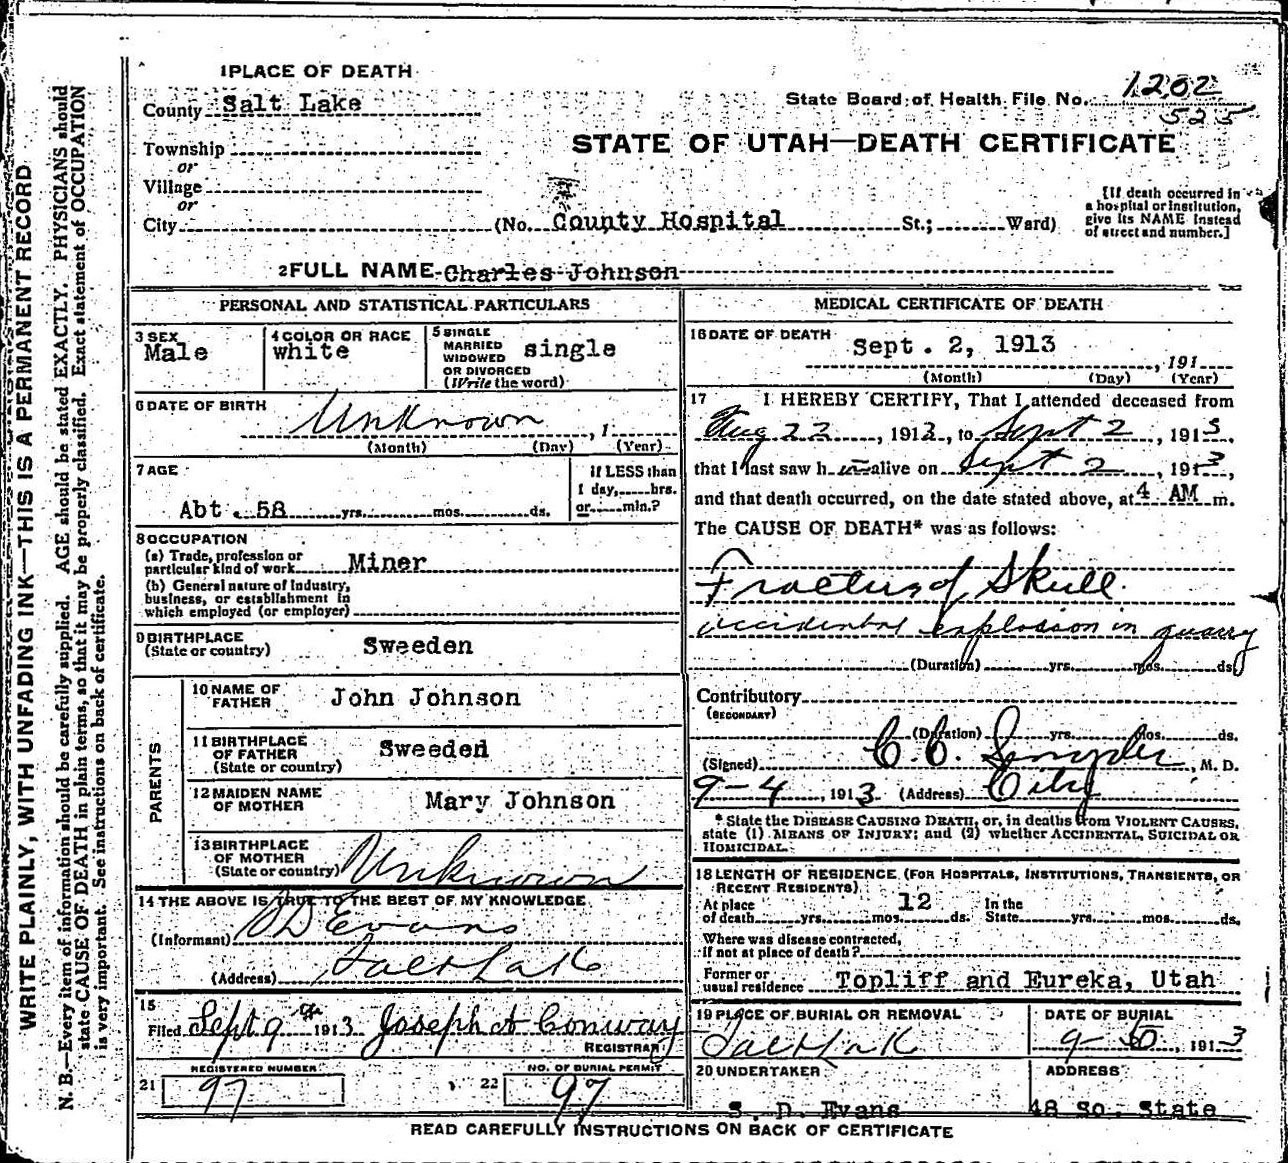 1 PLACE OF DEATH
County Salt Lake
State Board of Health File No. 1202
525
Township
or
STATE OF UTAH—DEATH CERTIFICATE
Village
or
City (No. County Hospital St.; Ward)
[If death occurred in
a hospital or institution,
give its NAME instead
of street and number.]
2 FULL NAME Charles Johnson
PERSONAL AND STATISTICAL PARTICULARS
3 SEX
Male
4 COLOR OR RACE
white
5 SINGLE
MARRIED
WIDOWED
OR DIVORCED
(Write the word)
single
6 DATE OF BIRTH
Unknown , 1
(Month) (Day) (Year)
7 AGE
Abt. 58 yrs. mos. ds.
If LESS than
1 day, hrs.
or min.?
8 OCCUPATION
(a) Trade, profession or
particular kind of work Miner
(b) General nature of industry,
business, or establishment in
which employed (or employer)
9 BIRTHPLACE
(State or country) Sweeden
PARENTS
10 NAME OF
FATHER John Johnson
11 BIRTHPLACE
OF FATHER
(State or country) Sweeden
12 MAIDEN NAME
OF MOTHER Mary Johnson
13 BIRTHPLACE
OF MOTHER
(State or country) Unknown
14 THE ABOVE IS TRUE TO THE BEST OF MY KNOWLEDGE
(Informant) S D Evans
(Address) Salt Lake
15
Filed Sept 9th 1913 Joseph H Conway
REGISTRAR
REGISTERED NUMBER
21 97
NO. OF BURIAL PERMIT
22 97
MEDICAL CERTIFICATE OF DEATH
16 DATE OF DEATH
Sept. 2, 1913
, 191
(Month) (Day) (Year)
17 I HEREBY CERTIFY, That I attended deceased from
Aug 22, 1913, to Sept 2, 1913,
that I last saw h im alive on Sept 2, 1913,
and that death occurred, on the date stated above, at 4 AM m.
The CAUSE OF DEATH* was as follows:
Fracture of Skull.
accidental explosion in quarry
(Duration) yrs. mos. ds.
Contributory
(SECONDARY)
(Duration) yrs. mos. ds.
(Signed) C. C. Snyder, M. D.
9-4, 1913 (Address) City
* State the DISEASE CAUSING DEATH, or, in deaths from VIOLENT CAUSES,
state (1) MEANS OF INJURY; and (2) whether ACCIDENTAL, SUICIDAL OR
HOMICIDAL.
18 LENGTH OF RESIDENCE (FOR HOSPITALS, INSTITUTIONS, TRANSIENTS, OR
RECENT RESIDENTS)
At place
of death yrs. mos. 12 ds.
In the
State yrs. mos. ds.
Where was disease contracted,
if not at place of death?
Former or
usual residence Topliff and Eureka, Utah
19 PLACE OF BURIAL OR REMOVAL
Salt Lake
DATE OF BURIAL
, 1913
20 UNDERTAKER
S. D. Evans
ADDRESS
48 So. State
READ CAREFULLY INSTRUCTIONS ON BACK OF CERTIFICATE
WRITE PLAINLY, WITH UNFADING INK—THIS IS A PERMANENT RECORD
N. B.—Every item of information should be carefully supplied. AGE should be stated EXACTLY. PHYSICIANS should
state CAUSE OF DEATH in plain terms, so that it may be properly classified. Exact statement of OCCUPATION
is very important. See instructions on back of certificate.